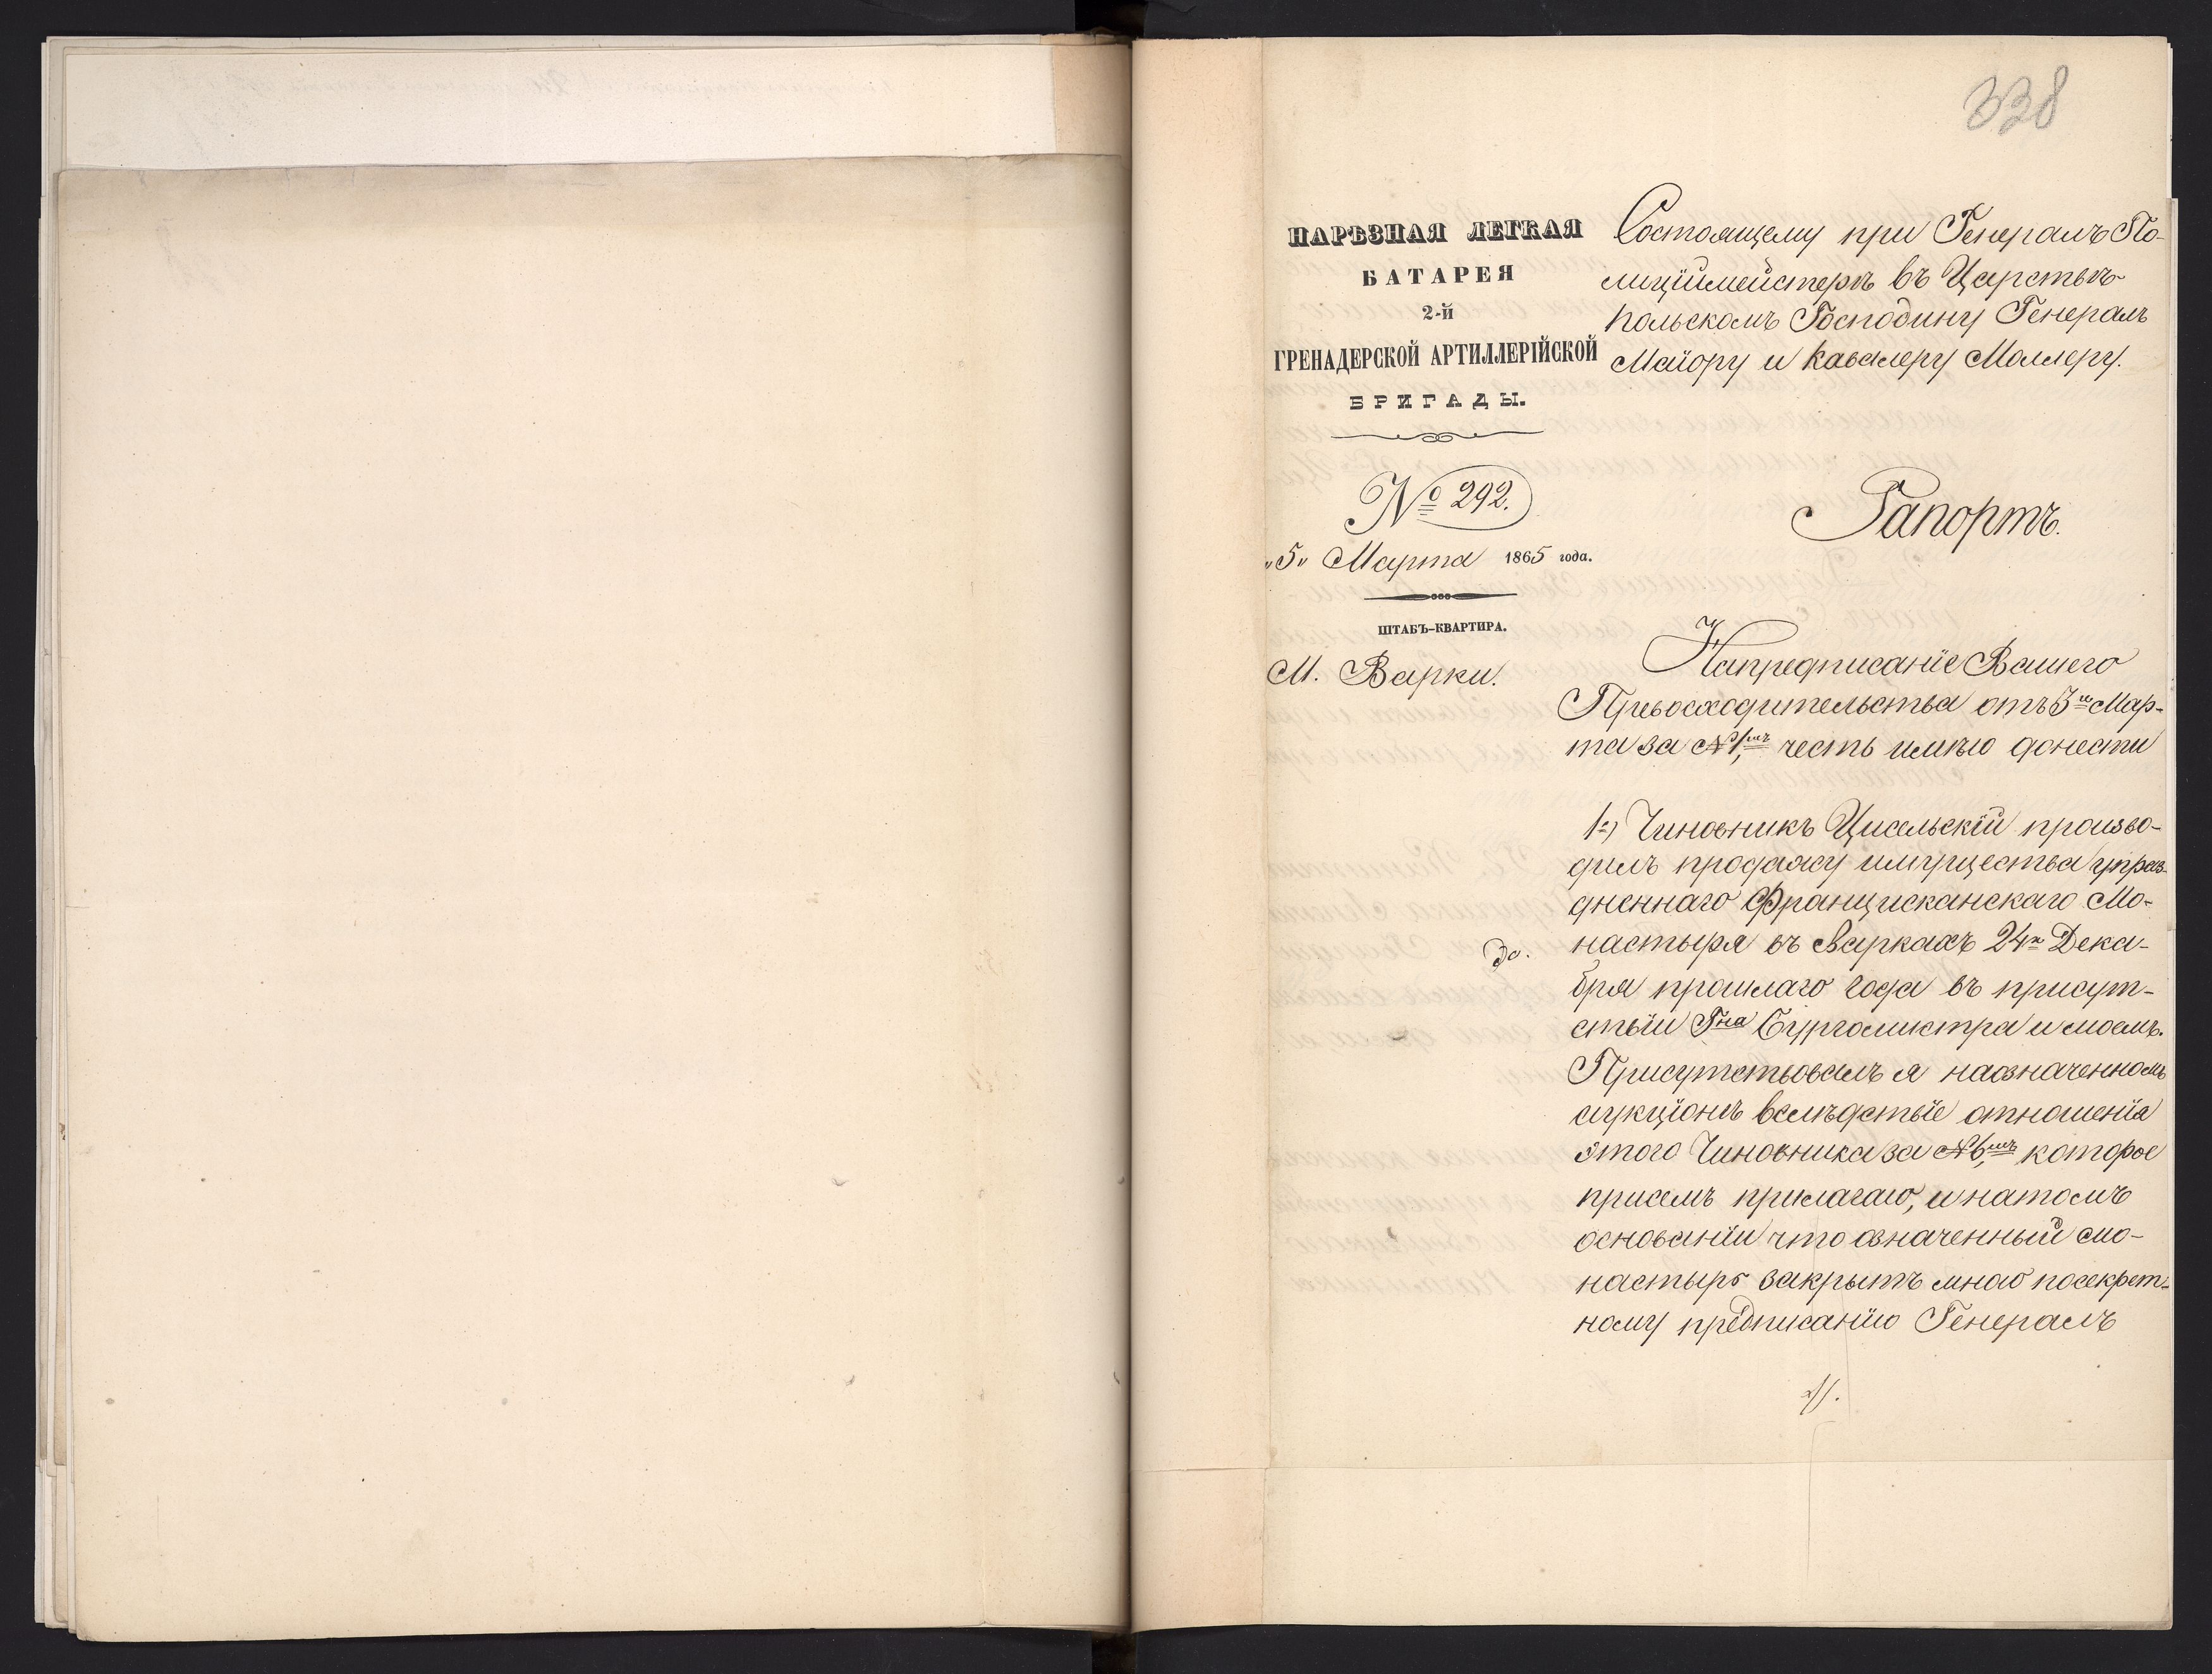 338
НАРѢЗНАЯ ЛЕГКАЯ
БАТАРЕЯ
2-й
ГРЕНАДЕРСКОЙ АРТИЛЛЕРІЙСКОЙ
БРИГАДЫ.
№ 292.
„5„ Марта 1865 года.
ШТАБЪ-КВАРТИРА.
М. Варки.
Состоящему при Генералъ По-
лиціймейстерѣ въ Царствѣ
Польскомъ Господину Генералъ
Маіору и Кавалеру Моллеру.
Рапортъ.
Напредписаніе Вашего
Превосходительства отъ 3го Мар-
та за №1,мъ честь имѣю донести
1е) Чиновникъ Цисельскій произво-
дилъ продажу имущества упраз-
дненнаго Францисканскаго Мо-
настыря въ Варкахъ 24го Дека-
бря прошлаго года въ присут-
ствіи Гна Бургомистра и моемъ.
Присутствовалъ я наозначенномъ
аукціонѣ вслѣдствіе отношенія
этого Чиновника за №6,мъ которое
присемъ прилагаю, и натомъ
основаніи что означенный мо-
настырь закрытъ мною посекрет-
ному предписанію Генералъ